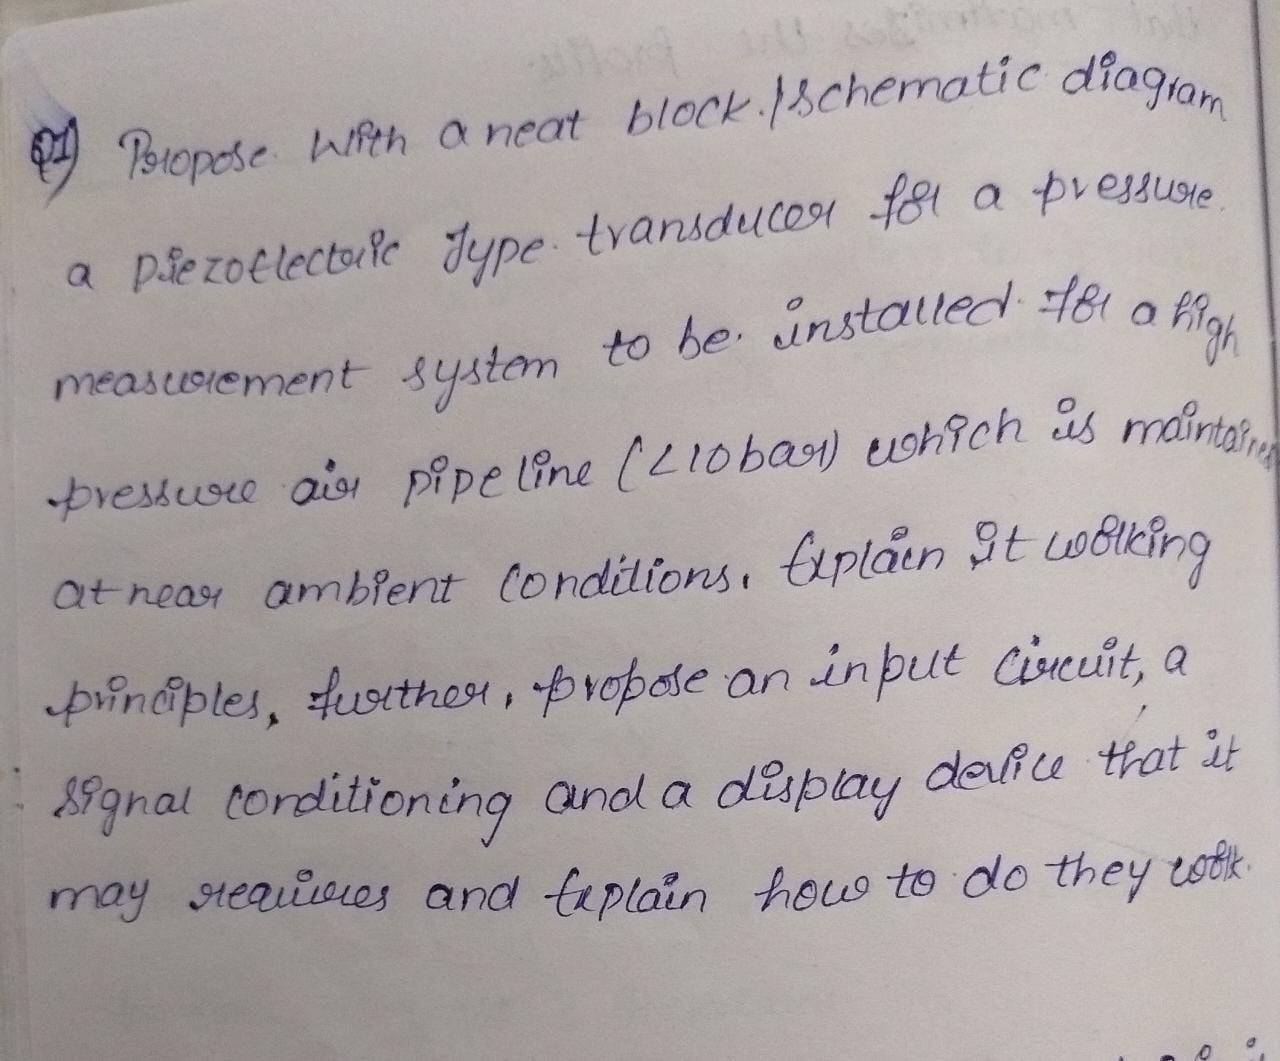 Q1) Propose with a neat block./schematic diagram
a piezoelectric type transducer for a pressure
measurement system to be installed for a high
pressure air pipeline (<10bar) which is maintained
at near ambient conditions. Explain it working
principles, further, propose an input circuit, a
signal conditioning and a display device that it
may requires and Explain how to do they work.